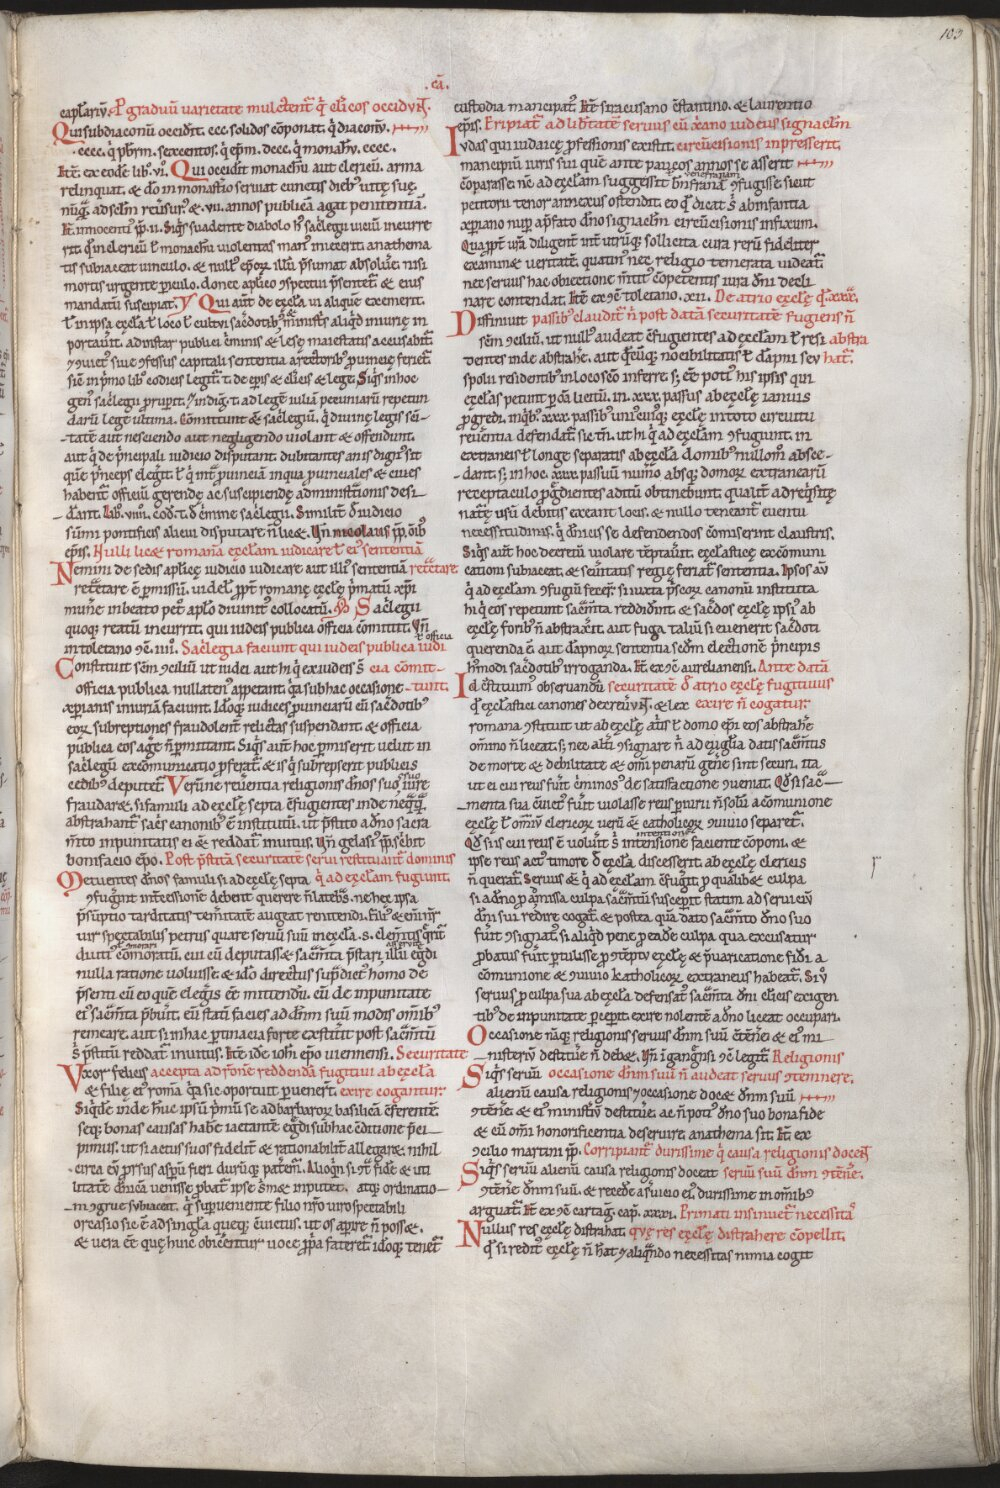 103
.cã.
capl'ariũ. P graduũ varietate mulctent' q̃ cl'icos occidunt.
Qui subdiaconũ occidit. ccc. solidos cõponat. q̃ diaconũ.
cccc. q̃ pb'rm. sexcentos. q̃ ep'm. dccc. q̃ monachũ. cccc.
Itẽ. ex eodẽ lib. vi. Qui occidit monachũ aut clericũ. arma
relinquat. & dõ in monast'io serviat cunctis dieb; vitę suę.
nũq; ad sclm reusur'. & .vii. annos publicã agat penitentiã.
It. innocenti' pp. ii. Siq's suadente diabolo h' sac'legii viciũ incurre
rit. q'd in clericũ t' monachũ violentas man' iniecerit. anathema
tis subiaceat vinculo. & null' ep'oꝝ illũ p'sumat absolue'. nisi
mortis urgente periculo. donec ap'lico ɔspectui p'sentet'. & eius
mandatũ suscipiat. Qui aut' de eccl'a vi aliquẽ exemerit.
t' in ipsa eccl'a t' loco t' cultui sac'dotib; & ministis aliq'd iniurię in
portauit. ad instar publici c'minis & lesę maiestatis accusabit'.
ɔuict' siue ɔfessus capitali sententia a rectorib; prouincię feriet'.
sic in p'mo lib' codicis legit'. t. de ep'is & cl'icis & lege. Siq's in hoc
gen' sac'legii prupit.
darũ lege ultima. Cõmittunt & sac'legiũ. q' diuinę legis sc̃i-
tatẽ aut nesciendo aut negligendo violant & offendunt.
aut q' de p'ncipali iudicio disputant. dubitantes an is dign' sit
quẽ p'nceps eleg'it. t' q' int' prouinciã inqua prouinciales & ciues
habent' officiũ gerendę ac suscipiendę administ'tionis desi-
d'ant. lib. viiii. cod. t. d' c'mine sac'legii. Similit' d' iudicio
sũmi pontificis alicui disputare ñ lic&. Vñ nicolaus pp. õib;
ep'is. Nulli lic& romanã eccl'am iudicare t' ei' sententiã
Nemini de sedis ap'licę iudicio iudicare aut illi' sententiã retractare
retractare ẽ p'missũ. videl'. pp't romanę eccl'ę p'matũ xp'i
mun'e in beato pet'o ap'lo diuinit' collocatũ. Sac'legii
quoq; reatũ incurrit. qui iudeis publica officia cõmittit. Vñ
in toletano ɔc. iiii. Sac'legia faciunt qui iudeis publica iudi
Constituit sc̃m ɔciliũ ut iudei aut hi q' ex iudeis s̃ cia cõmit-
officia publica nullaten' appetant. q'a sub hac occasione -tunt.
xp'ianis iniuriã faciunt. Idoq; iudices prouinciarũ cũ sac'dotib;
eoꝝ subreptiones fraudolent' relictas suspendant. & officia
publica eos age' ñ p'mittant. Siq's aut' hoc p'miserit velut in
sac'legũ excõmunicatio proferat'. & is q' subrepserit publicis
cedib; deputet'. Verũne reuerentia religionis dños suo iure
fraudar&. si famuli ad eccl'ę septa cõfugientes inde neq'q'
abstrahant'. sac's canonib; ẽ institutũ. ut p'stito a dño sacra
m'to inpunitatis ei & reddat' inuitus. Vñ gelasi' pp. sc'bit
bonifacio ep'o. Post p'stitã securitatẽ serui restituant' dominis
Metuentes dños famuli si ad eccl'ę septa q' ad eccl'am fugiunt.
ɔfug'int int'cessionẽ debent querere ñ lateb's. ne hec ipsa
p'sũptio tarditatis tem'itatẽ augeat renitendi. Fili' & enim n'r
uir spectabilis petrus quare seruũ suũ in eccl'a .s. clem'tis q'rit'
diuti' cõmoratũ. cui cũ deputass& sac'mta p'stari. illũ eg'di
nulla ratione voluisse. & ido directus sup'dict' homo de
p'senti cũ eo quẽ eleg'is cẽ mittendũ. cũ de inpunitate
ei sac'mta p'buit. cũ statũ facies ad dñm suũ modis om'ib;
remeare. aut si in hac p'tinacia forte exstit'it post sac'mtũ
s' p'stitũ reddat' inuitus. Itẽ idẽ ioh'i ep'o viennensi. Securitate
Vxor felicis accepta ad d'one reddendã fugitiui ab eccl'a
& filię ei' romã q'a sic oportuit p'uener'. exire cogantur.
Siq'dẽ inde hñc ipsũ p'mũ se ad barbaroꝝ basilicã c'ferentẽ
seq; bonas causas habe' iactantẽ eg'di sub hac c'ditione p'ci-
pimus. ut si actus suos fidelit' & rationabilit' allegare. nihil
circa eũ prsus asp'ũ fieri durũq; patem'. Alioq'n si it' fidẽ & uti
litatẽ d'nicã venisse probat' ipse s' me inputet. atq; ordinatio-
ni ɔgrue subiaceat. q' supueniente filio n'ro uiro spectabili
occasio sic ẽ ad singl'a queq; c'uictus. ut os aperire ñ poss&.
& vera cẽ quę huic obicerentur voce prp'a fateret'. idoq; tenet'
custodia mancipat'. Itẽ siracusano c'stantino. & laurentio
ep'is. Eripiat' ad lib'tatẽ seruus cũ xp'ano iudeus signaclm
Iudas qui iudaicę professionis existit. circũcisionis impresserit.
mancipiũ iuris sui quẽ ante paucos annos se asserit
cõparasse. nc̃ ad eccl'am suggessit b'nfranã ɔfugisse. sicut
petitorii tenor annexus ostendit. eo q' dicat s' ab infantia
xp'iano nup' ap'fato dño signaclm circũcisionis infixum.
Qua ppt' vr̃a diligent' int' utrũq; sollicita cura rerũ fidelit'
examin& veritatẽ. quatin' nec religio temerata videat'.
nec seruus hac obiectione m'tit' cõpetentis iura dñi decli
nare contendat. Itẽ ex ɔc toletano. xii. De atrio eccl'ę q'd. xxx.
Diffiniuit passib; claudit' ñ post datã securitatẽ fugiens ñ
sc̃m ɔciliũ. ut null' audeat c'fugientes ad eccl'am t' resi abstra
dentes inde abstrahe'. aut q'dcũq; nocibilitatis t' dãpni seu hat'.
spolii residentib; in loco sc̃o inferre. s; ẽe poti' his ipsis qui
eccl'as petunt p õa licitũ. in .xxx. passus ab eccl'ę ianuis
progredi. in q'b; .xxx. passib; uni'cuiq; eccl'ę in toto circuitu
reuerentia defendat'. sic t'n. ut hi q' ad eccl'am ɔfugiunt. in
extraneis t' longe separatis ab eccl'a domib; nullom' absce-
-dant. s; in hoc .xxx. passuũ num'o absq; domoꝝ extranearũ
receptaculo prg'dientes aditũ obtinebunt. qualit' ad req'sitę
nat'ę usũ debitis exeant locis. & nullo teneant' euentu
necessitudinis. q' d'nicis se defendendos cõmiserint claustris.
Siq's aut' hoc decretũ violare tẽptauit. eccl'asticę excõmuni
cationi subiaceat. & seu'itatis regię feriat' sententia. Ipsos aũ
q' ad eccl'am ɔfugiũ fecer'. si iuxta p'scoꝝ canonũ instituta
hi q' eos repetunt sac'mta reddid'int. & sac'dos eccl'ę ipsi' ab
eccl'ę forib; ñ abstraxit. aut fuga taliũ si euenerit sac'doti
querenda ẽ aut dãpnoꝝ sententia sedm electionẽ p'ncipis
h'modi sac'dotib; irroganda. Itẽ ex ɔc aurelianensi. Ante datã
Id c'stituim' observandũ securitatẽ d' atrio eccl'ę fugitiuus
q' eccl'astici canones decreuer'. & lex exire ñ cogatur.
romana ɔstituit ut ab eccl'ę at'is t' domo ep'i eos abstrahe'
om'ino ñ liceat. s; nec alt'i ɔsignare ñ ad euãg'lia datis sac'mtis
de morte & debilitate & om'i penarũ gen'e sint securi. ita
ut ei cui reus fu'it c'minos' de satisfactione ɔueniat. Q'd si sac-
menta sua c'uict' fu'it violasse reus p'iurii ñ solũ a cõmunione
eccl'ę t' om'iũ clericoꝝ verũ & catholicoꝝ ɔuiuio separet'.
Q'd si is cui reus ẽ voluit s' intensione faciente cõponi. &
ipse reus act' timore d' eccl'a discesserit. ab eccl'ę clericis
ñ querat'. Seruus & q' ad eccl'am c'fug'it. p qualib& culpa
si a dño p amissa culpa sac'mtũ suscep'it statim ad seruiciũ
dñi sui redire cogat'. & postea quã dato sac'mto dño suo
fu'it ɔsignat'. si aliq'd pene pro eadẽ culpa qua excusatur
probatus fu'it p'tulisse. p ɔtẽptu eccl'ę & p'uaricatione fidei a
cõmunione & ɔuiuio katholicoꝝ extraneus habeat'. Si ũ
seruus p culpa sua ab eccl'a defensat' sac'mta dñi cl'icis exigen
tib; de inpunitate p'cep'it. exire nolentẽ a dño liceat occupari.
Occasione nãq; religionis seruus dñm suũ c'tẽne'i & ei' mi
-nisteriũ destitue' ñ deb&. Vñ i gang'nsi ɔc legit'. Religionis
Siq's seruũ occasione dñm suũ ñ audeat seruus ɔtemnere.
alienũ causa religionis ɔoccasione doc& dñm suũ
ɔtẽne'. & ei' minist'iũ destitue'. ac ñ poti' dño suo bona fide
& cũ om'i honorificentia deservire. anathema sit. Itẽ ex
ɔcilio martini pp. Corripiant' durissime q' causa religionis docent
Siq's seruũ alienũ causa religionis doceat seruũ suũ dñm ɔtẽne'.
ɔtẽne' dñm suũ. & recede' a s'uicio ei'. durissime in omib;
arguat'. Itẽ ex ɔc cartag'. cap. xxxi. Primati insinuet' necessita'
Nullus res eccl'ę distrahat. quę res eccl'ę distrahere cõpellit.
q'd si redit' eccl'ę ñ hat ɔ aliquando necessitas nimia cogit